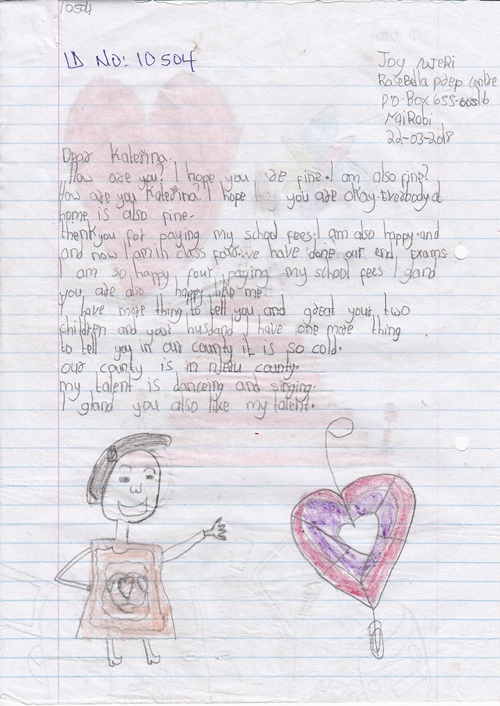 10504
ID NO: 10504
Joy WJERi
RoseBella prep centre
P.O.Box 655-00516
NaiRobi
22-03-2018
Dear Kateřina.
How are you? I hope you are fine. I am also fine?
How are you Kateřina? I hope you are okay. Everbody at
home is also fine.
thenkyou for paying my school fees. I am also happy and
and now I am in class four. we have done our end exams
I am so happy four paying my school fees I gland
you are also happy like me
I have more thing to tell you and great your two
children and your husband I have one more thing
to tell you in our county it is so cold.
our county is in Nyeru county.
my talent is danceing and singing.
I gland you also like my talent.